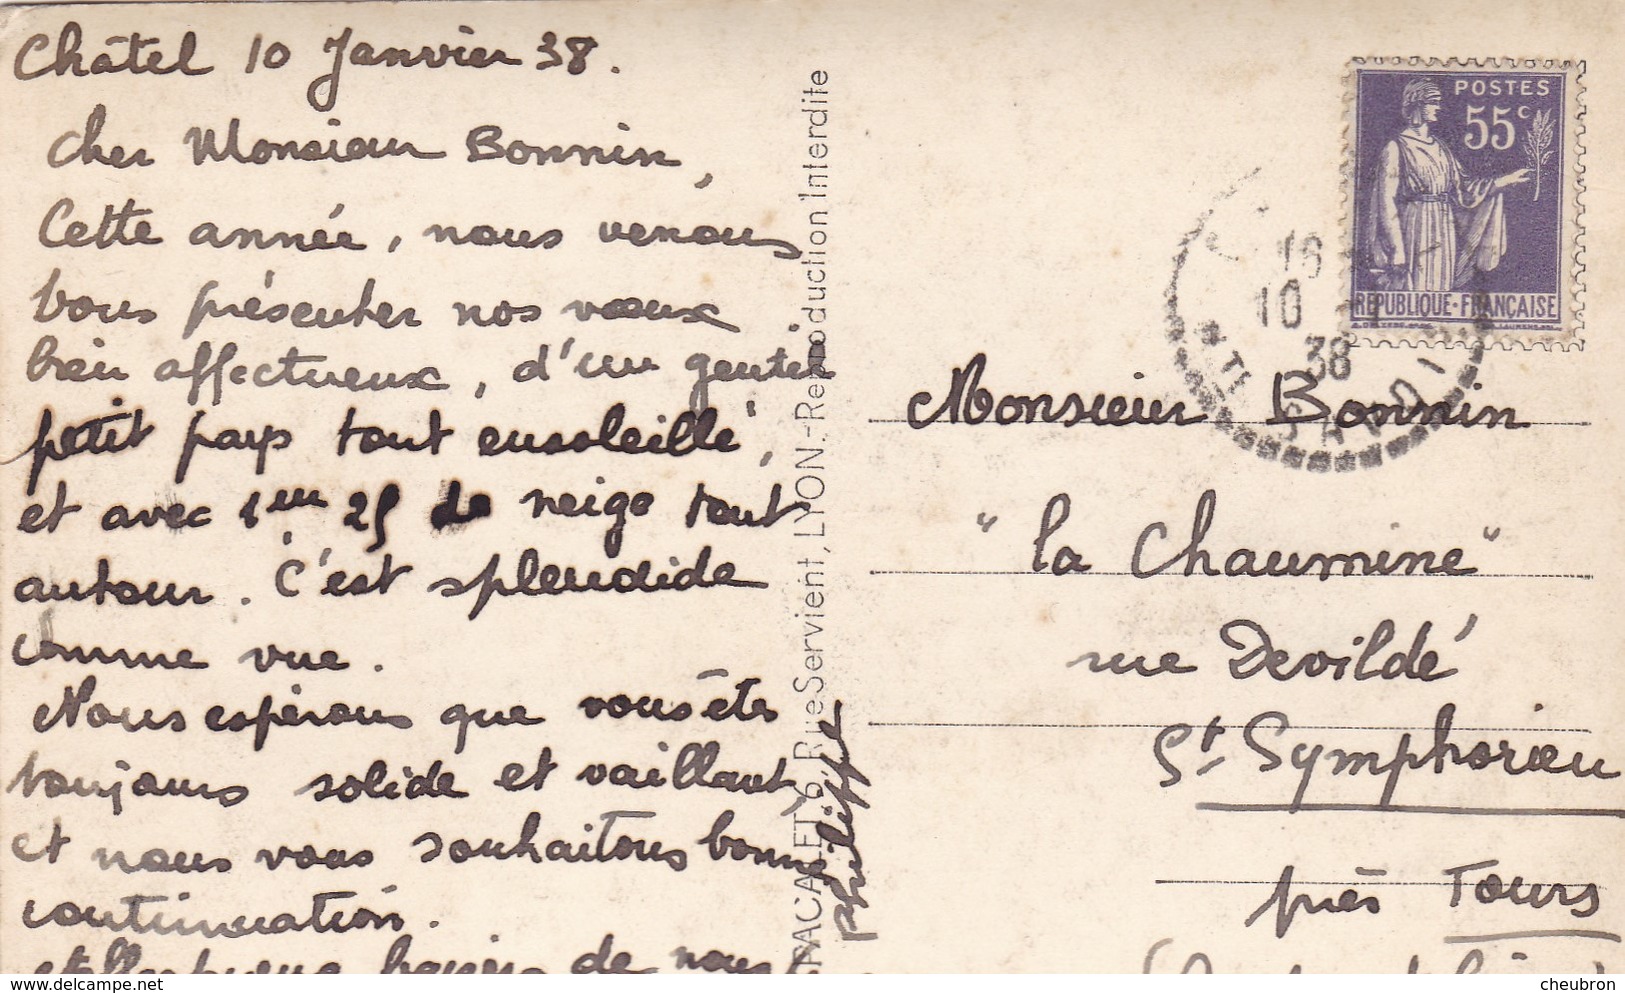 Châtel 10 Janvier 38.
Cher Monsieur Bonnin,
Cette année, nous venons
vous présenter nos vœux
bien affectueux, d'un gentil
petit pays tout ensoleillé,
et avec 1m 25 de neige tout
autour. C'est splendide
comme vue.
Nous espérons que vous êtes
toujours solide et vaillant
et nous vous souhaitons bonne
continuation.
de nous
Philippe
6, Rue Servient, LYON.-Reproduction Interdite
POSTES
55c
REPUBLIQUE·FRANÇAISE
16
10
38
Monsieur Bonnin
"la Chaumine"
rue Devildé
St Symphorien
près Tours
delcampe.net
cheubron